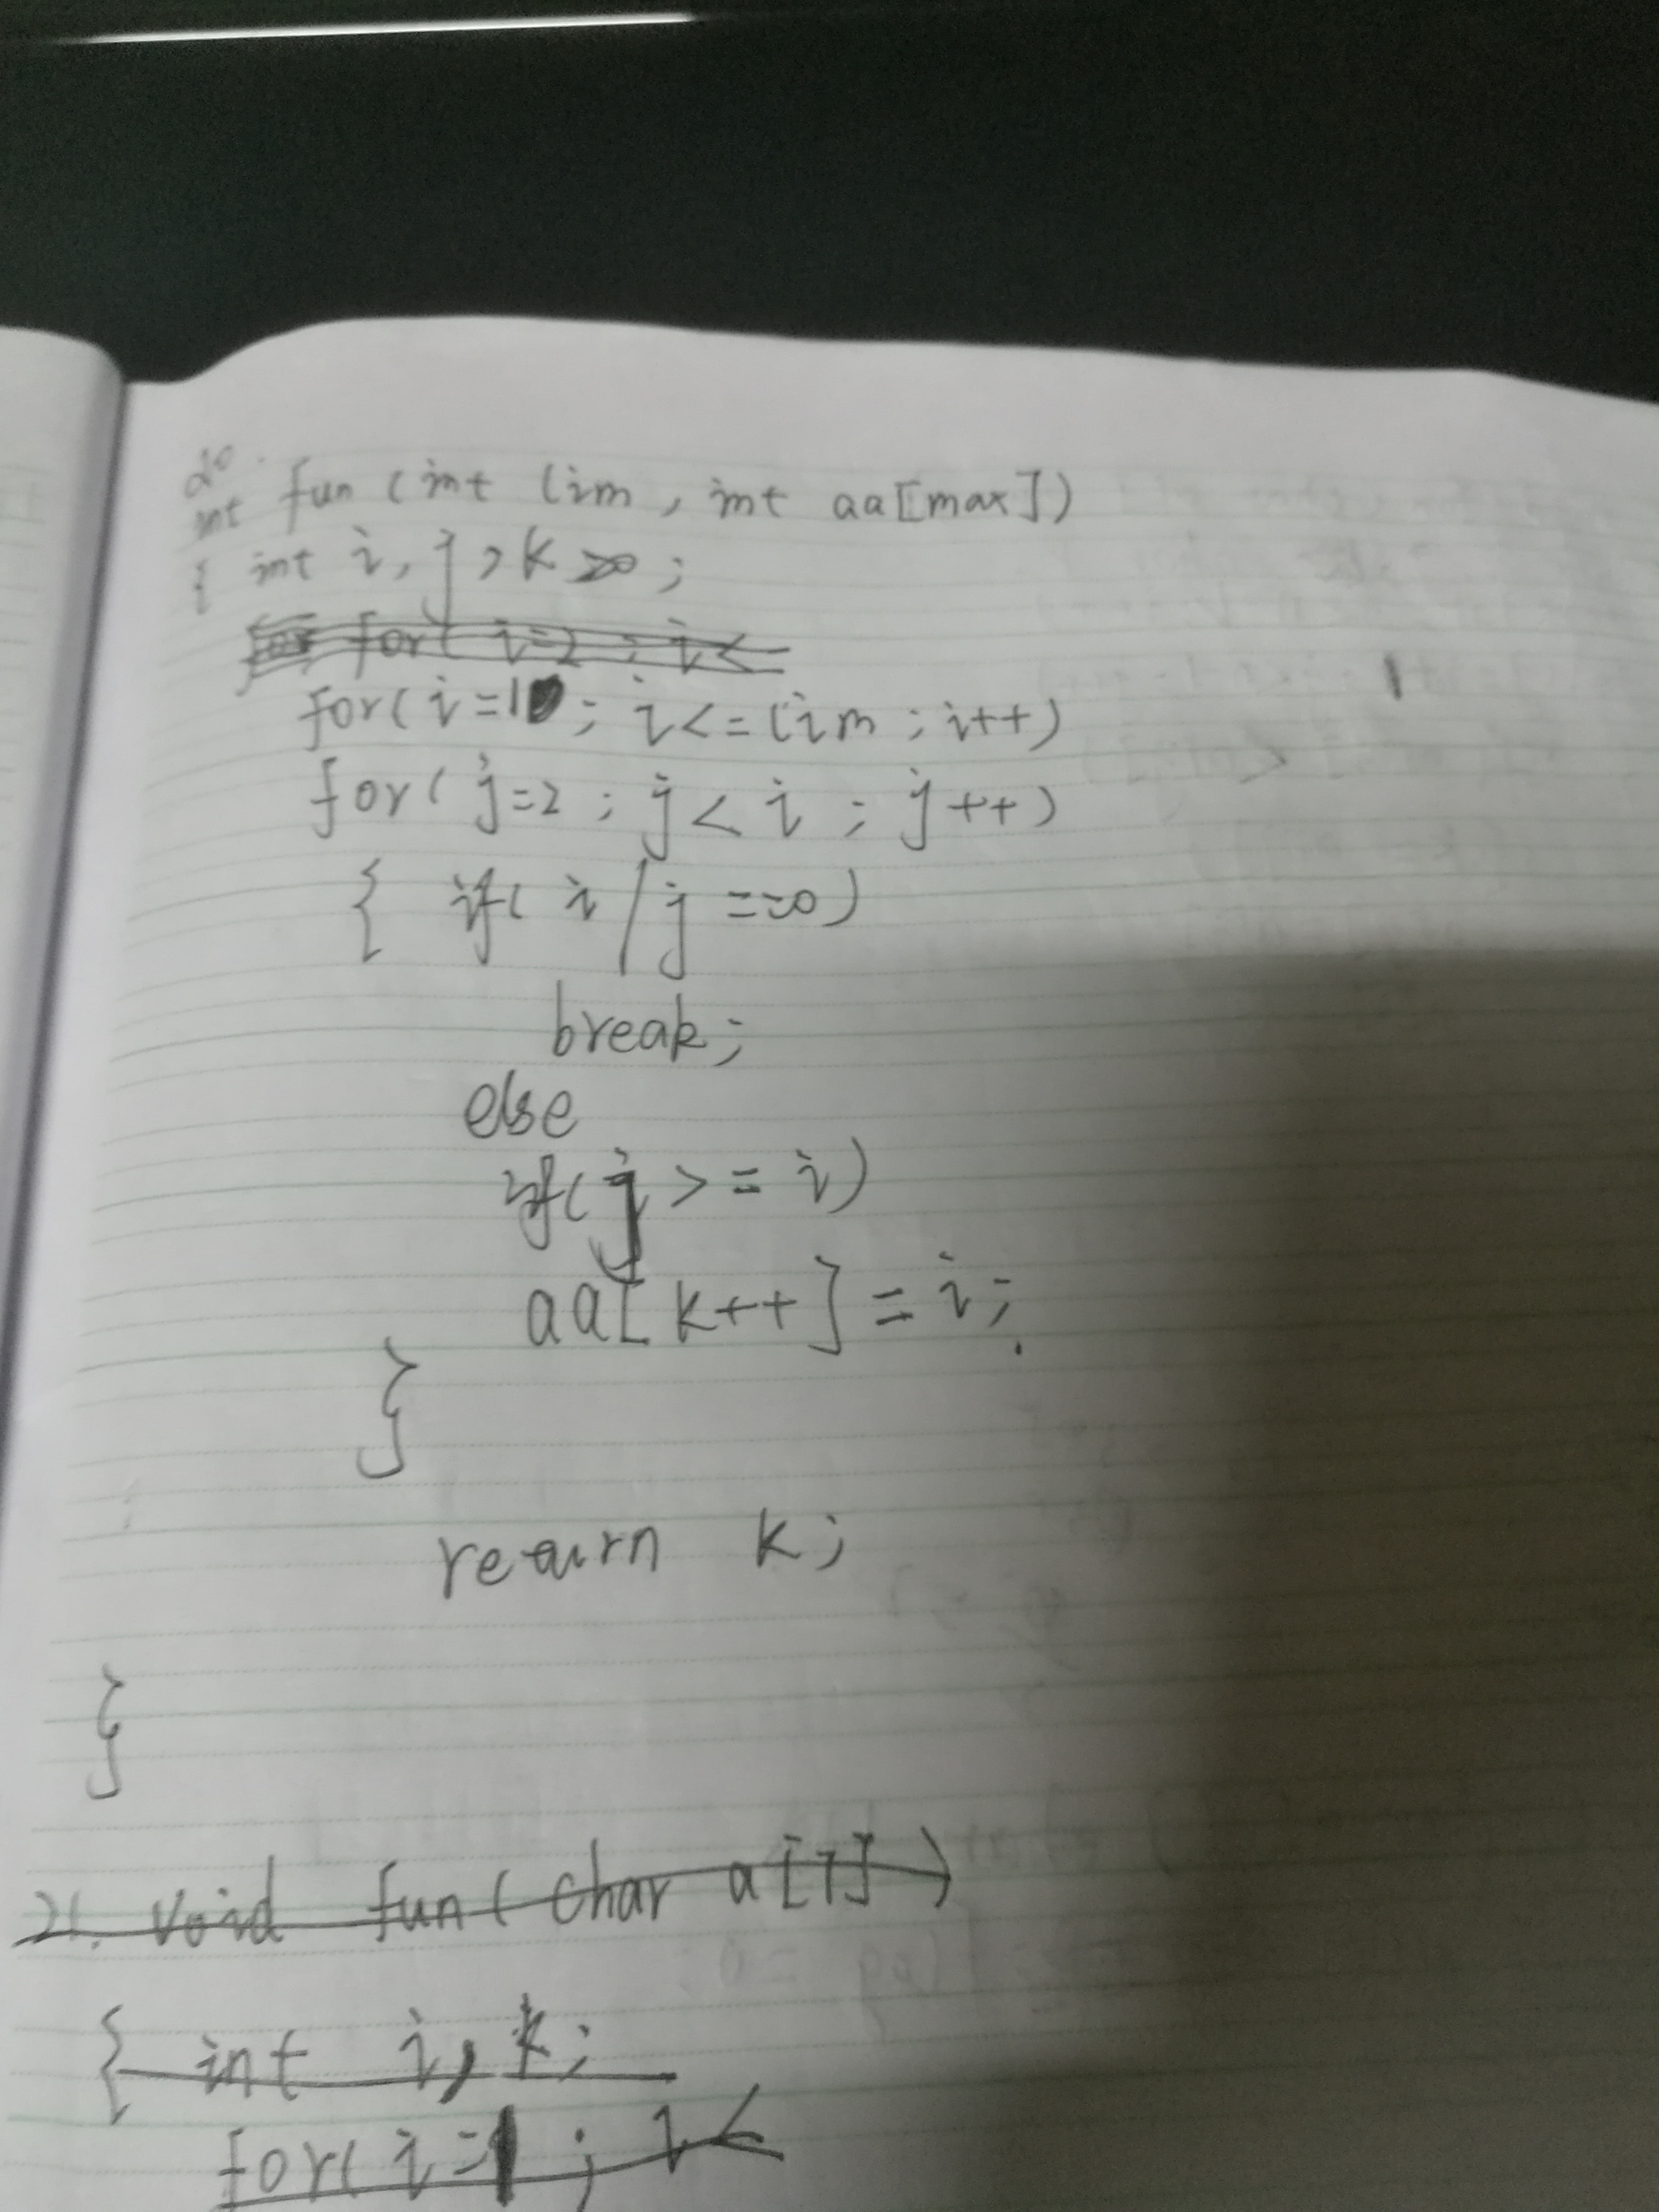 20.
int fun (int lim, int aa[max])
{ int i, j, k=0;
for( i=2 ; i<
for( i=1 ; i<=lim ; i++)
for( j=2 ; j<i ; j++)
{ if( i/j ==0)
break;
else
if(j >= i)
aa[k++] = i;
}
return k;
}
21. void fun( char a[7] )
{ int i, k;
for( i=1 ; i<